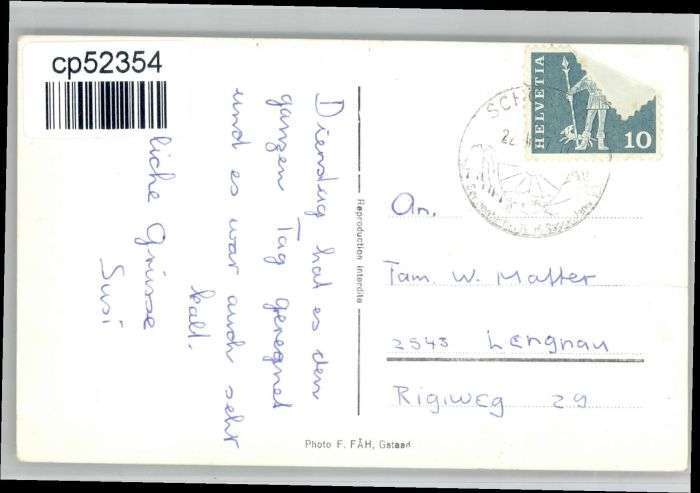 cp52354
Dienstag hat es den
ganzen Tag geregnet
und es war auch sehr
kalt.
liche Grüsse
Susi
Reproduction interdite
Photo F. FÄH, Gstaad
HELVETIA
10
SCH
An.
Fam. W. Matter
2543 Lengnau
Rigiweg 29